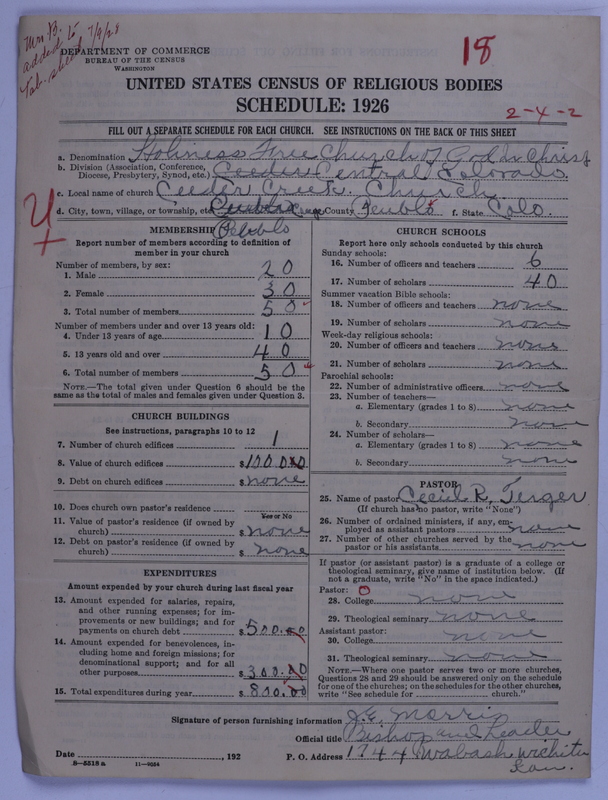 Mrs. B.
added to
Tab. sheet 7/9/28
18
DEPARTMENT OF COMMERCE
BUREAU OF THE CENSUS
WASHINGTON
UNITED STATES CENSUS OF RELIGIOUS BODIES
SCHEDULE: 1926
2-4-2
FILL OUT A SEPARATE SCHEDULE FOR EACH CHURCH. SEE INSTRUCTIONS ON THE BACK OF THIS SHEET
a. Denomination Holiness Free Church of God in Christ
b. Division (Association, Conference, Diocese, Presbytery, Synod, etc.) Ceeder Central Colorado
c. Local name of church Ceeder Creek. Church
d. City, town, village, or township, etc. County Peublo f. State Colo.
Peublo
MEMBERSHIP
Report number of members according to definition of
member in your church
Number of members, by sex:
1. Male 20
2. Female 30
3. Total number of members 50
Number of members under and over 13 years old:
4. Under 13 years of age 10
5. 13 years old and over 40
6. Total number of members 50
NOTE.—The total given under Question 6 should be the
same as the total of males and females given under Question 3.
CHURCH BUILDINGS
See instructions, paragraphs 10 to 12
7. Number of church edifices 1
8. Value of church edifices $1000.00
9. Debt on church edifices $none
10. Does church own pastor's residence
Yes or No
11. Value of pastor's residence (if owned by
church) $none
12. Debt on pastor's residence (if owned by
church) $none
EXPENDITURES
Amount expended by your church during last fiscal year
13. Amount expended for salaries, repairs,
and other running expenses; for im-
provements or new buildings; and for
payments on church debt $500.00
14. Amount expended for benevolences, in-
cluding home and foreign missions; for
denominational support; and for all
other purposes $300.00
15. Total expenditures during year $800.00
CHURCH SCHOOLS
Report here only schools conducted by this church
Sunday schools:
16. Number of officers and teachers 6
17. Number of scholars 40
Summer vacation Bible schools:
18. Number of officers and teachers none
19. Number of scholars none
Week-day religious schools:
20. Number of officers and teachers none
21. Number of scholars none
Parochial schools:
22. Number of administrative officers none
23. Number of teachers—
a. Elementary (grades 1 to 8) none
b. Secondary none
24. Number of scholars—
a. Elementary (grades 1 to 8) none
b. Secondary none
PASTOR
25. Name of pastor Ceciel R. Terger
(If church has no pastor, write "None")
26. Number of ordained ministers, if any, em-
ployed as assistant pastors none
27. Number of other churches served by the
pastor or his assistants none
If pastor (or assistant pastor) is a graduate of a college or
theological seminary, give name of institution below. (If
not a graduate, write "No" in the space indicated.)
Pastor: 0
28. College none
29. Theological seminary none
Assistant pastor:
30. College none
31. Theological seminary none
NOTE.—Where one pastor serves two or more churches,
Questions 28 and 29 should be answered only on the schedule
for one of the churches; on the schedules for the other churches,
write "See schedule for church."
Signature of person furnishing information J. E. Morris
Official title Bishop and Leader
Date , 192 P. O. Address 1744 Wabash Wichita
Kan.
8—5518 a 11—9034